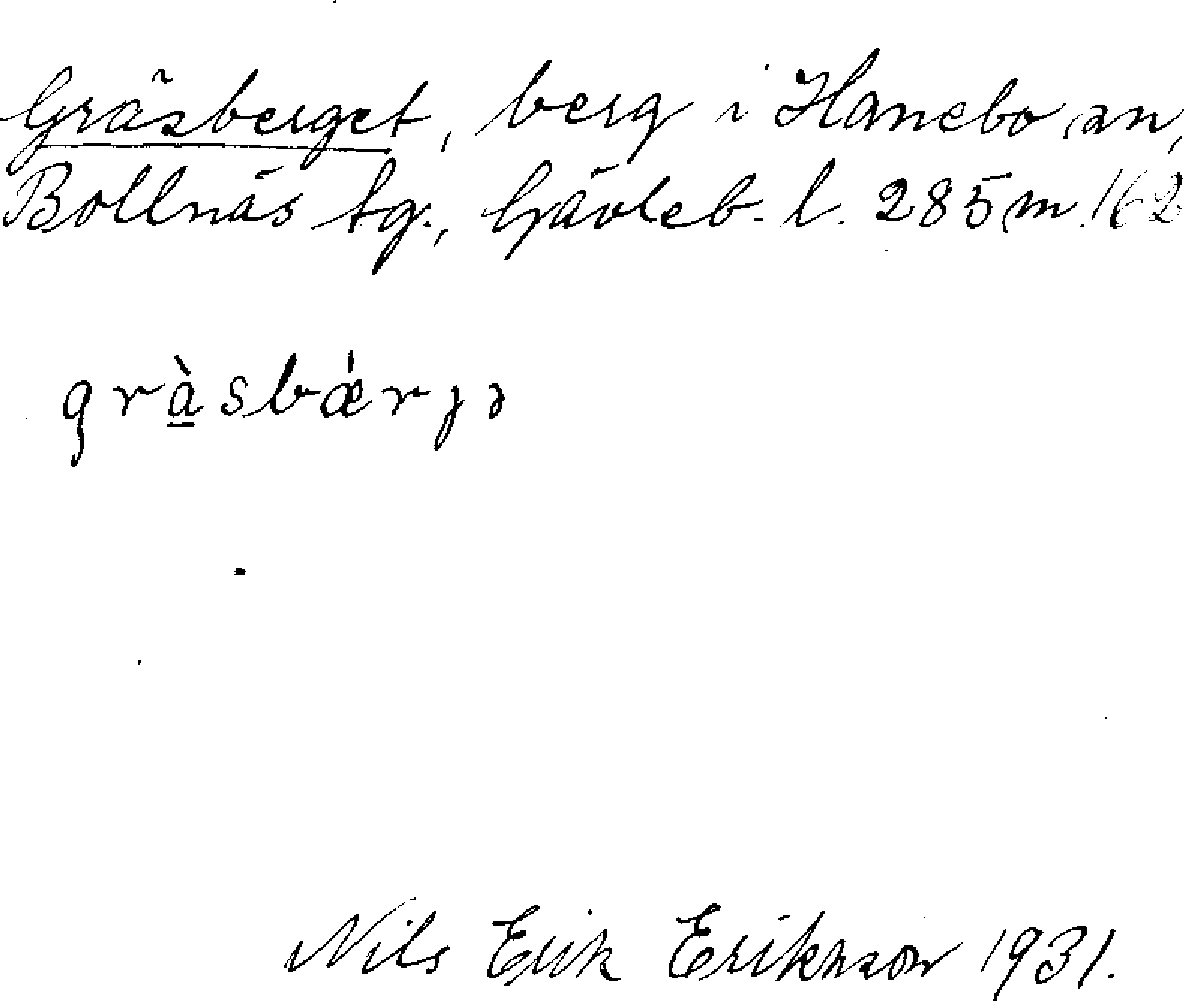 Gräsberget, berg i Hanebo sn,
Bollnäs tg., Gävleb. l. 285 m. 162
gràsbǽrjə
Nils Erik Eriksson 1931.